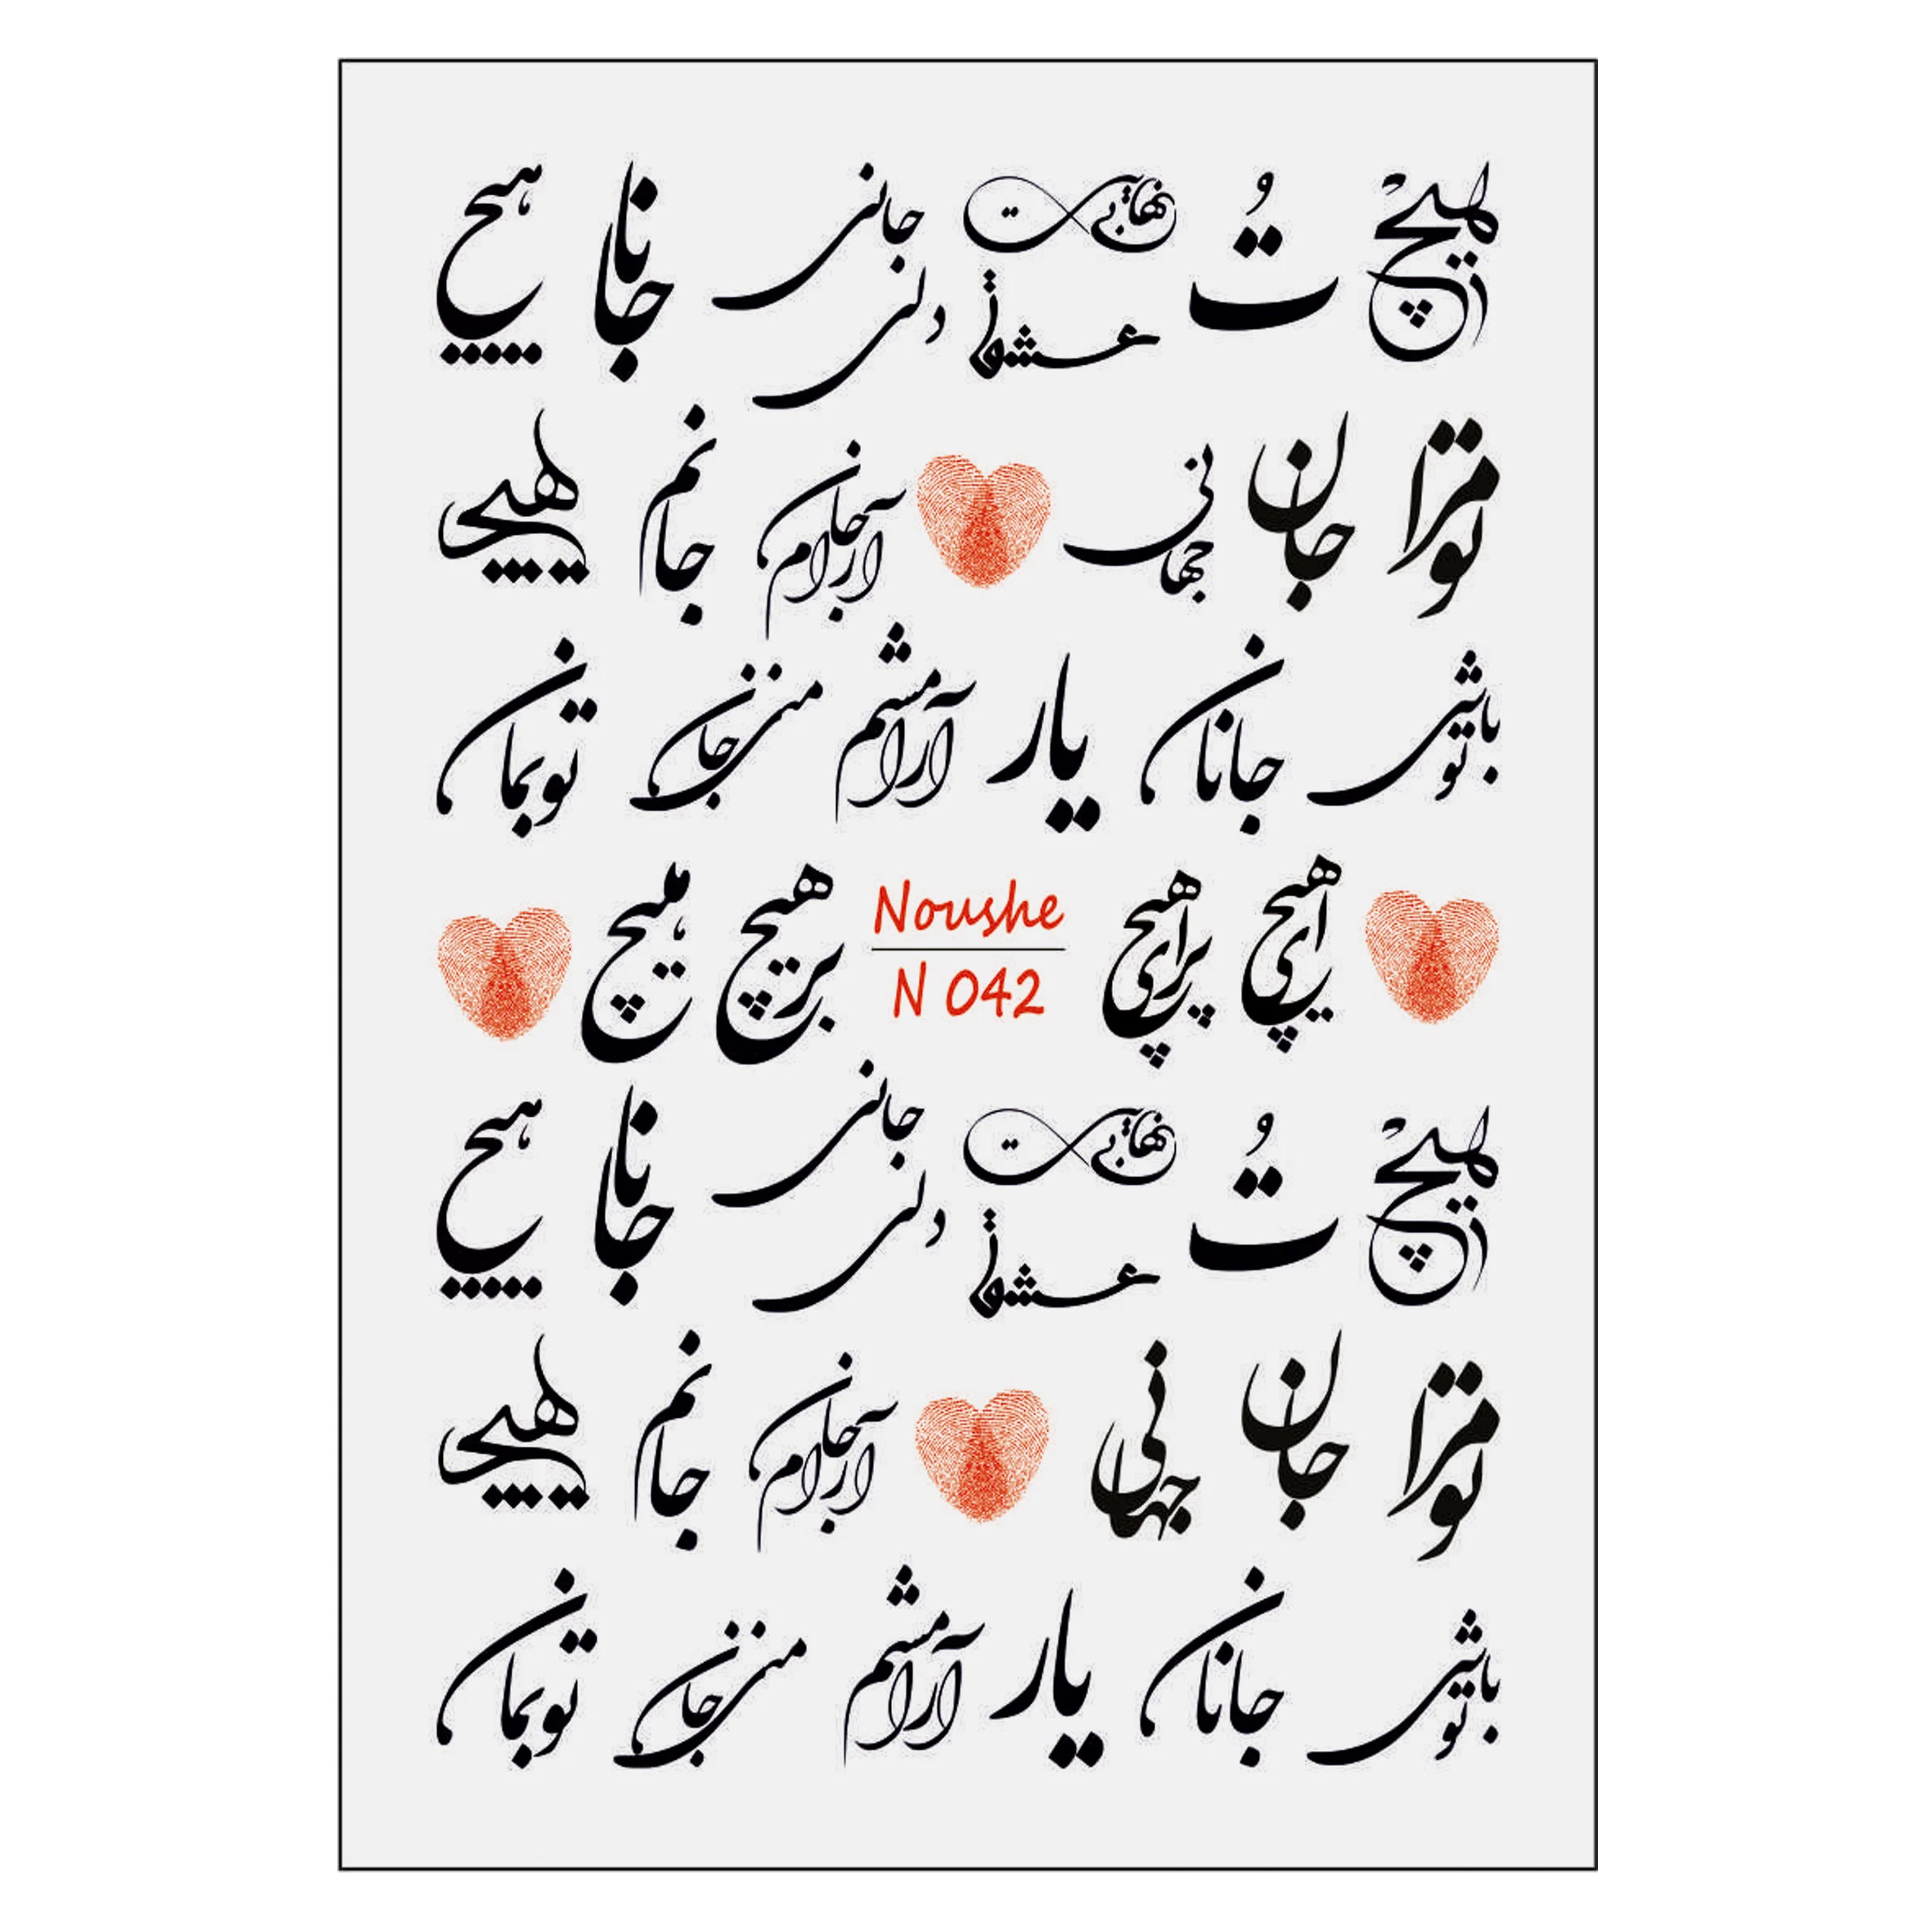 هیچ تُ بی نهایت عشق جانی دلی جانا هیچ
تو مرا جان جهانی آرام جان جانم هیچ
تو باشی جانان یار آرامشم جان منی تو بمان
ای هیچ برای هیچ Noushe بر هیچ مپیچ
N 042
هیچ تُ بی نهایت عشق جانی دلی جانا هیچ
تو مرا جان جهانی آرام جان جانم هیچ
تو باشی جانان یار آرامشم جان منی تو بمان